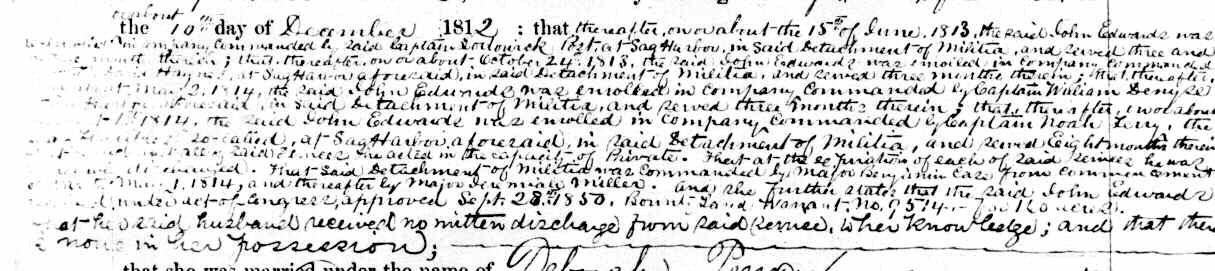 or about
the 10th day of December 1812 : that thereafter, on or about the 15th of June, 1813, the said John Edwards was
in company commanded by said Captain Post, at Sag Harbor, in said Detachment of Militia, and served three and
month therein; that, thereafter, on or about October 24, 1813, the said John Edwards was enrolled in company commanded
Haynes, at Sag Harbor aforesaid, in said Detachment of Militia, and served three months therein; that, thereafter,
about May 2, 1814, the said John Edwards was enrolled in company commanded by Captain William Denyse
Harbor aforesaid, in said Detachment of Militia, and served three months therein; that, thereafter, on or about
1st 1814, the said John Edwards was enrolled in company commanded by Captain Noah Terry, the
so-called, at Sag Harbor, aforesaid, in said Detachment of Militia, and served Eight months therein
said services, he acted in the capacity of Private. That at the expiration of each of said services he was
discharged. That said Detachment of Militia was commanded by Major Benjamin Case from commencement
to May 1, 1814, and thereafter by Major Jeremiah Miller. And she further states that the said John Edwards
under act of Congress, approved Sept. 28th 1850, Bounty Land Warrant No. 9514 for 160 acres.
that her said husband received no written discharge from said service, to her knowledge; and that there
is none in her possession;
that she was married under the name of Deborah